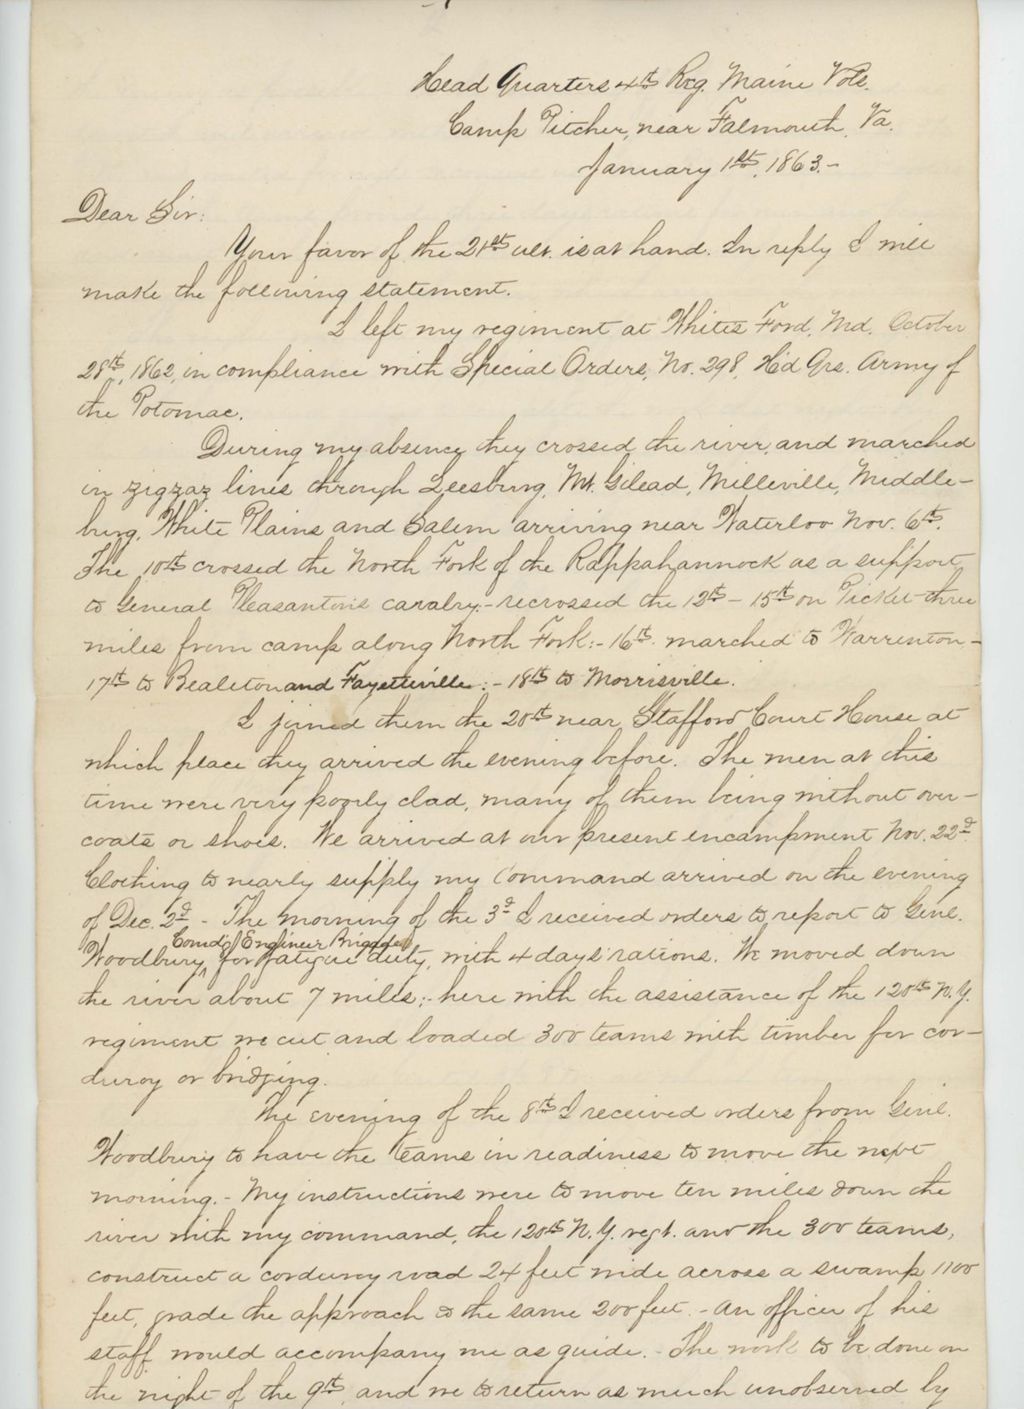 Head Quarters 4th Reg. Maine Vols.
Camp Pitcher, near Falmouth, Va.
January 1st, 1863.-
Dear Sir:
Your favor of the 21st ult. is at hand. In reply I will
make the following statement.
I left my regiment at Whites Ford, Md. October
28th, 1862, in compliance with Special Orders, No. 298, Hd Qrs. Army of
the Potomac.
During my absence they crossed the river, and marched
in zigzag lines through Leesburg, Mt. Gilead, Milleville, Middle-
burg, White Plains and Salem arriving near Waterloo Nov. 6th.
The 10th crossed the North Fork of the Rappahannock as a support
to General Pleasanton's cavalry;- recrossed the 12th - 15th on Picket three
miles from camp along North Fork:- 16th marched to Warrenton-
17th to Bealeton and Fayetteville:- 18th to Morrisville.
I joined them the 20th near Stafford Court House at
which place they arrived the evening before. The men at this
time were very poorly clad, many of them being without over-
coats or shoes. We arrived at our present encampment Nov. 22d
Clothing to nearly supply my Command arrived on the evening
of Dec. 2d - The morning of the 3d I received orders to report to Genl.
Comdg Engineer Brigade
Woodbury, for fatigue duty, with 4 days' rations. We moved down
the river about 7 miles;- here with the assistance of the 120th N.Y.
regiment we cut and loaded 300 teams with timber for cor-
duroy or bridging.
The evening of the 8th I received orders from Genl.
Woodbury to have the teams in readiness to move the next
morning.- My instructions were to move ten miles down the
river with my command, the 120th N.Y. regt. and the 300 teams,
construct a corduroy road 24 feet wide across a swamp 1100
feet, grade the approach to the same 200 feet.- An officer of his
staff would accompany me as guide.- The work to be done on
the night of the 9th, and we to return as much unobserved by